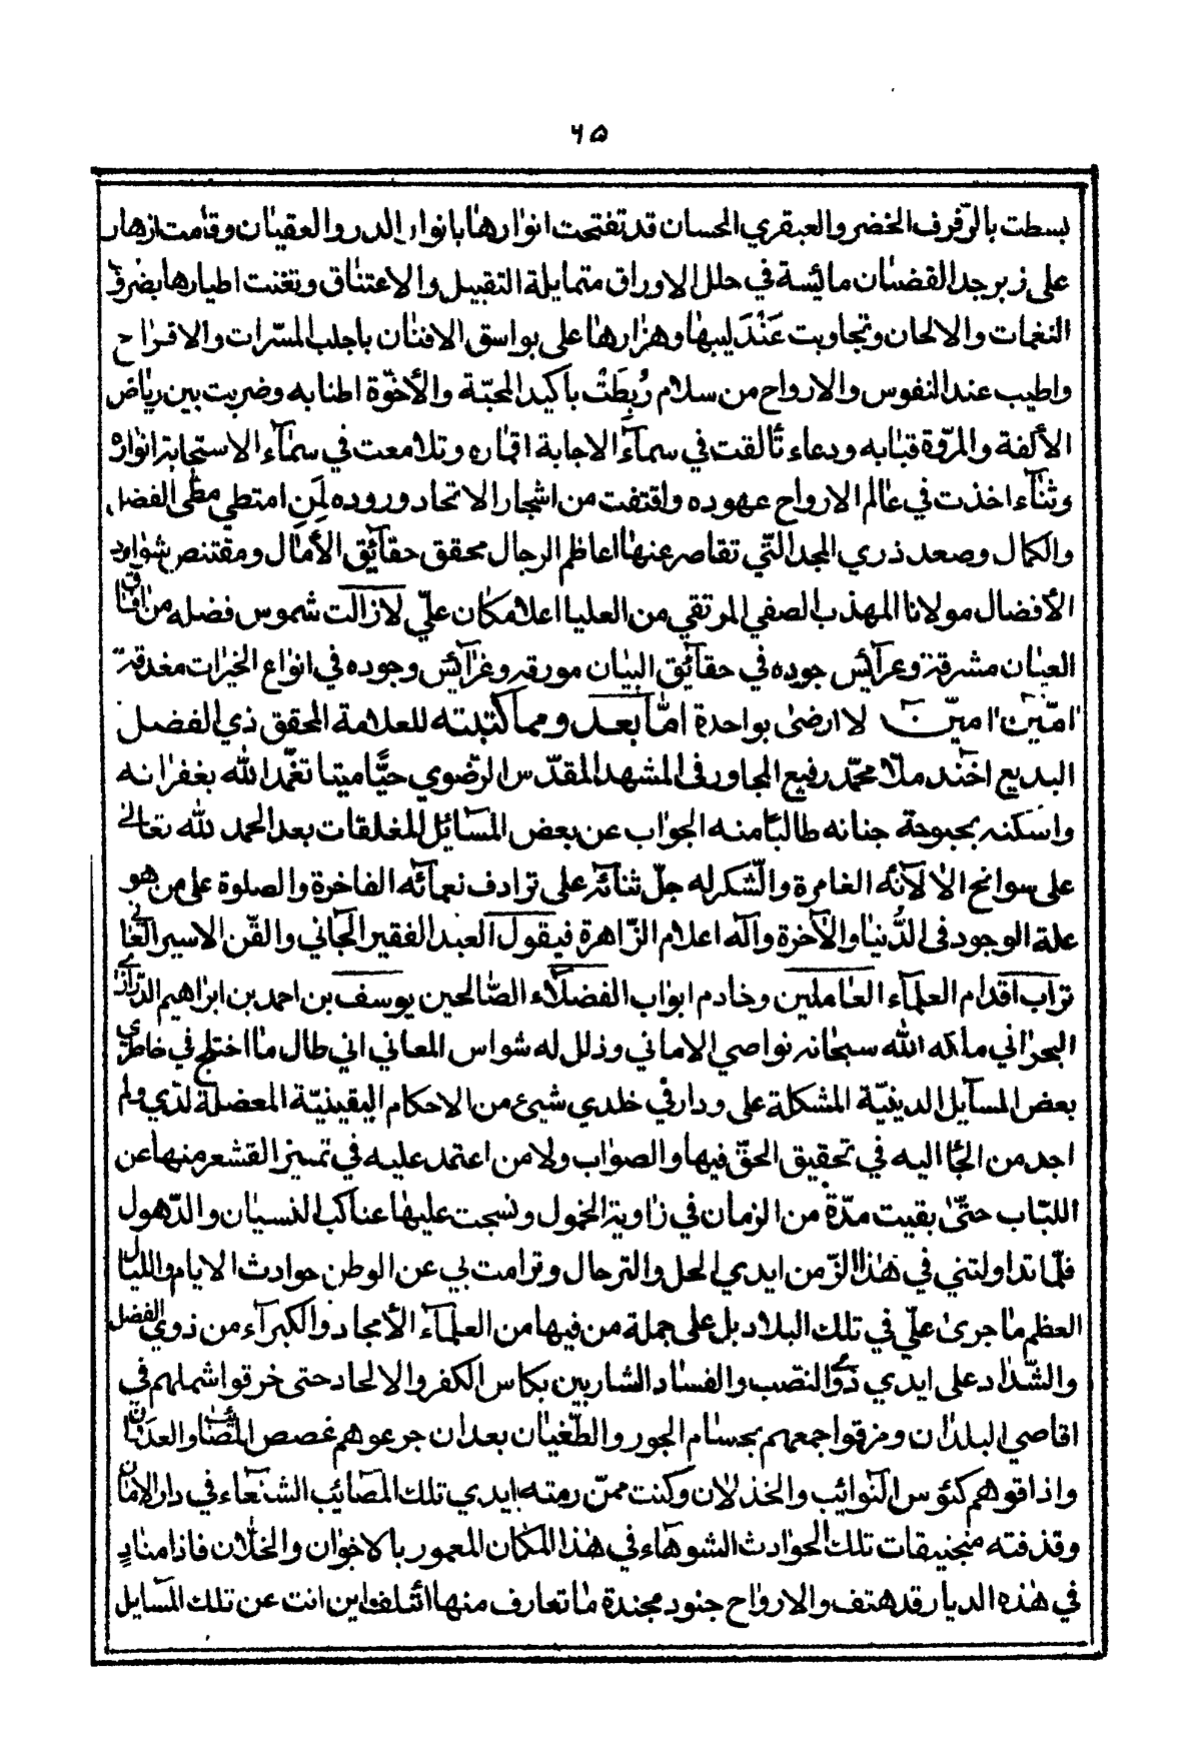 ٦٥
بسطت بالرّفرف الخضر والعبقري الحسان قد تفتحت انوارها بانوار الدر والعقيان وقامت ازهار
على زبرجد القضبان مائسة في حلل الاوراق متمايلة التقبيل والاعتناق وتغنت اطيارها بضرف
النغمات والالحان وتجاوبت عَنْدَليبها وهزارها على بواسق الافنان باجلب المسّرات والاقراح
واطيب عند النفوس والارواح من سلام رُبِطَتْ بأكيد المحبّة والأخوّة اطنابه وضربت بين رياض
الألفة والمرّوة قبابه ودعاء تألقت في سمآء الاجابة اقماره وتلامعت في سمآء الاستجابة انواره
وثنآء اخذت في عالم الارواح عهوده واقتفت من اشجار الاتحاد وروده لِمَن امتطى مطى الفضل
والكمال وصعد ذري المجد الّتي تقاصر عنها اعاظم الرجال محقق حقآئق الأمال ومقتنص شوارد
الأفضال مولانا المهذب الصفي المرتقي من العليا اعلا مكان علىّ لازالت شموس فضله من افاق
العيان مشرقة وعرآئس جوده في حقآئق البيان مورقه وغرآئس وجوده في انواع الخيرات مغدقة
امّين امين لا ارضى بواحدة امّا بعد ومما كتبته للعلامة المحقق ذي الفضل
البديع اخند ملا محمّد رفيع المجاور فى المشهد المقدّس الرّضوي حيًّا ميتا تغمّد الله بغفرانه
واسكنه بحبوحة جنانه طالبًا منه الجواب عن بعض المسآئل المغلقات بعد الحمد لله تعالى
على سوانح الالآئه الغامرة والشّكر له جلّ ثنآئه على ترادف نعمآئه الفاخرة والصلوة على من هو
علة الوجود فى الدُّنيا والآخرة وآله اعلام الزّاهرة فيقول العبد الفقير الجاني والقّن الاسير العاني
تراب اقدام العلمآء العاملين وخادم ابواب الفضلاء الصّالحين يوسف بن احمد بن ابراهيم الدّرازي
البحراني ملكه الله سبحانه نواصي الاماني وذلل له شواس المعاني اني طال ما اختلج في خاطري
بعض المسآيل الدينيّة المشكلة على ودار في خلدي شيئ من الاحكام اليقينيّة المعضلة لدّي ولم
اجد من الجأ اليه في تحقيق الحقّ فيها والصواب ولا من اعتمد عليه في تميز القشر منها عن
اللبّاب حتّى بقيت مدّة من الزمان في زاوية الخمول ونسجت عليها عناكب النسيان والذّهول
فلمّا تداولتني في هذا الزّمن ايدي الحل والترحال وترامت بي عن الوطن حوادث الايام والليال
العظم ما جرى علىّ في تلك البلاد بل على جملة من فيها من العلمآء الأمجاد والكبرآء من ذوي الفضل
والشّداد على ايدي ذوي النصّب والفساد الشاربين بكاس الكفر والالحاد حتى خرقوا شملهم في
اقاصي البلدان ومزقوا جمعهم بحسام الجور والطّغيان بعد ان جرعوهم غصص المصائب والعدوان
واذاقوهم كئوس النّوائب والخذلان وكنت ممنّ رمته ايدي تلك المصآئب الشنعآء في دار الامان
وقذفته منجنيقات تلك الحوادث الشوهآء في هذا المكان المعمور بالاخوان والخلّان فاذا منادٍ
في هذه الديار قد هتف والارواح جنود مجندة ما تعارف منها ائتلف اين انت عن تلك المسآيل